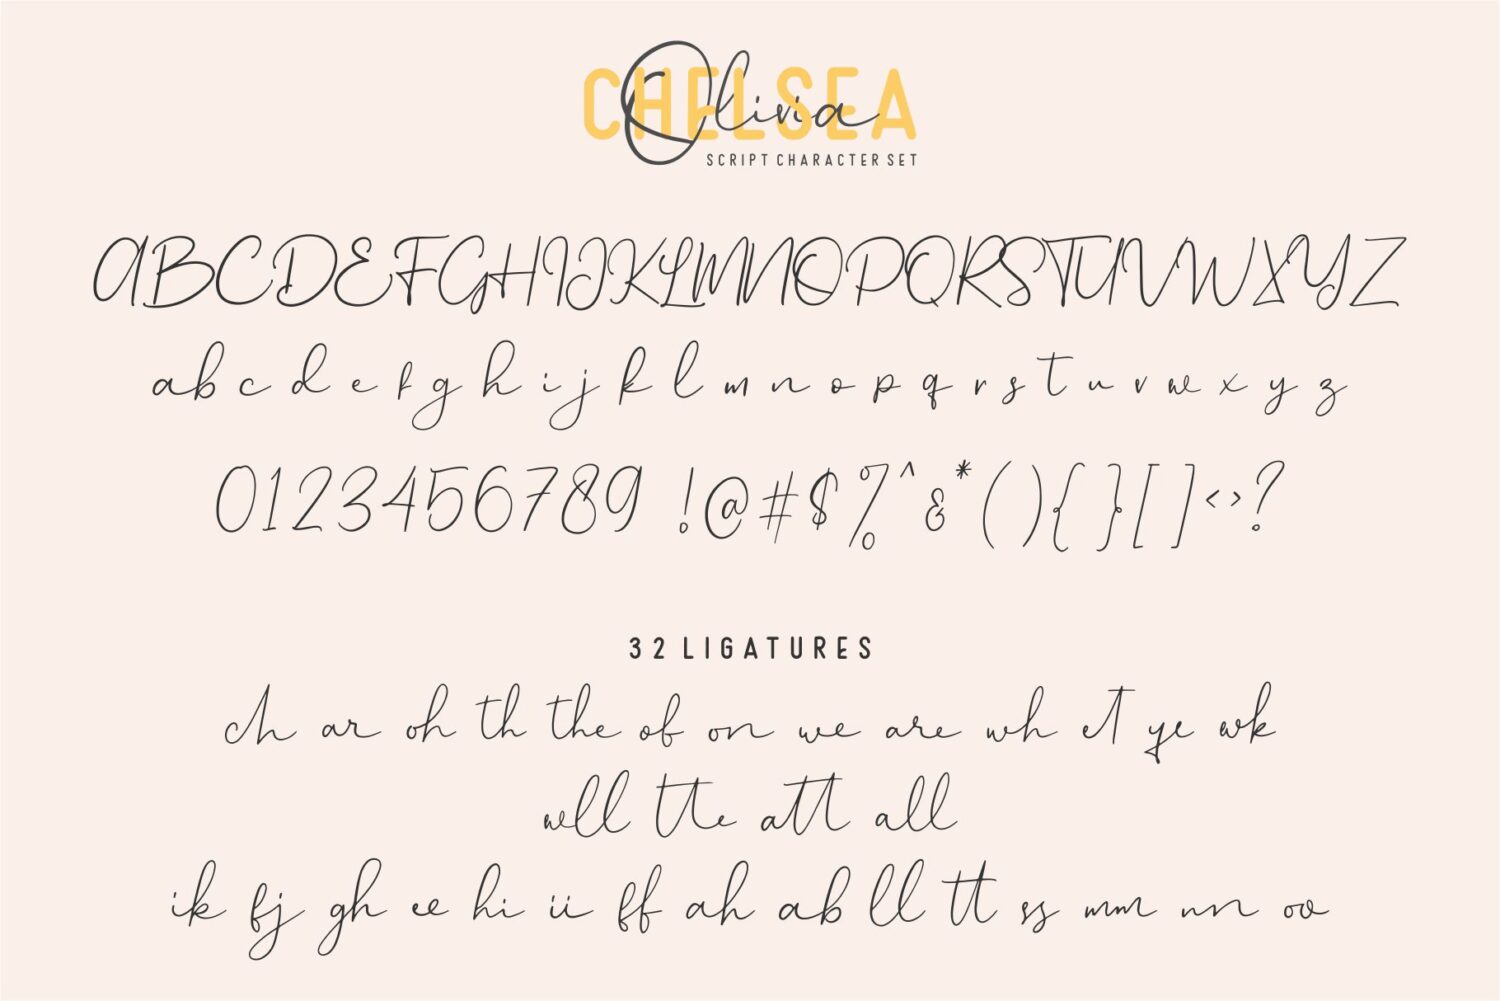 CHELSEA
Olivia
SCRIPT CHARACTER SET
ABCDEFGHIJKLMNOPQRSTUVWXYZ
a b c d e f g h i j k l m n o p q r s t u v w x y z
0123456789 !@#$%^&*(){}[]<>?
32 LIGATURES
ch ar oh th the of on we are wh et ye wk
well tte att all
ik fj gh ee hi ii ff ah ab ll tt ss mm nn oo